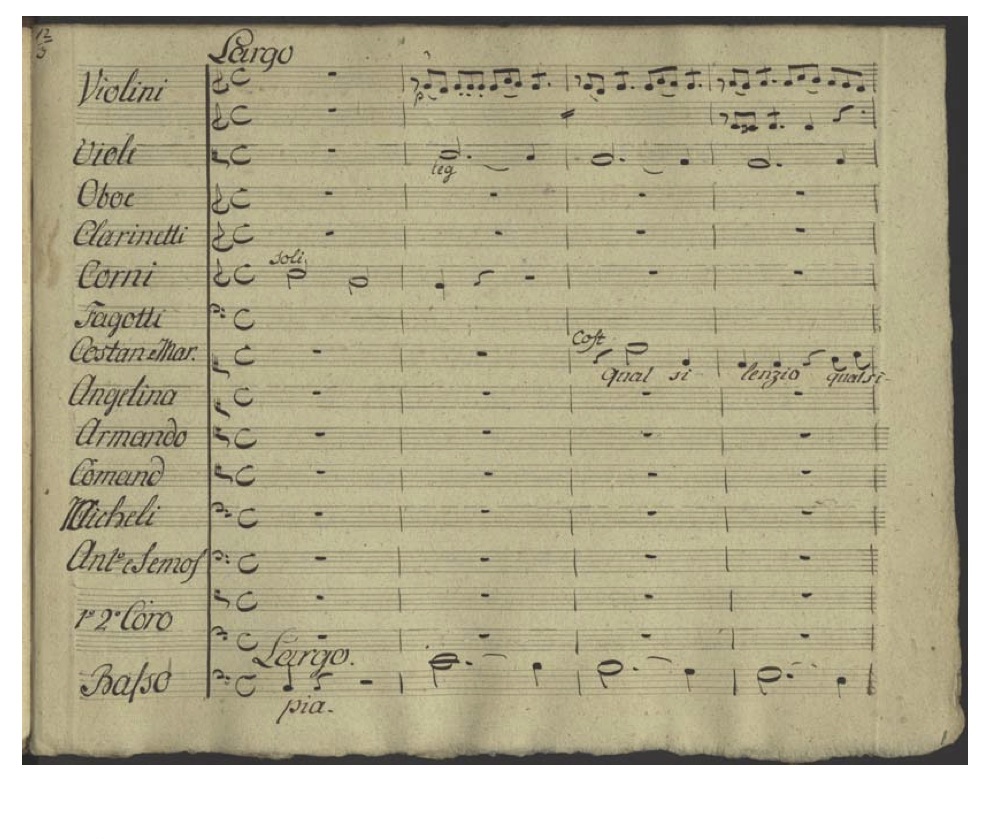 12
3
Largo
Violini
p
Viole
leg
Oboe
Clarinetti
Corni
soli
Fagotti
Costan e Mar.
Cost
qual si- lenzio qual si-
Angelina
Armando
Comand
Micheli
Ant.º e Semos
1º 2º Coro
Largo.
Baſso
pia.